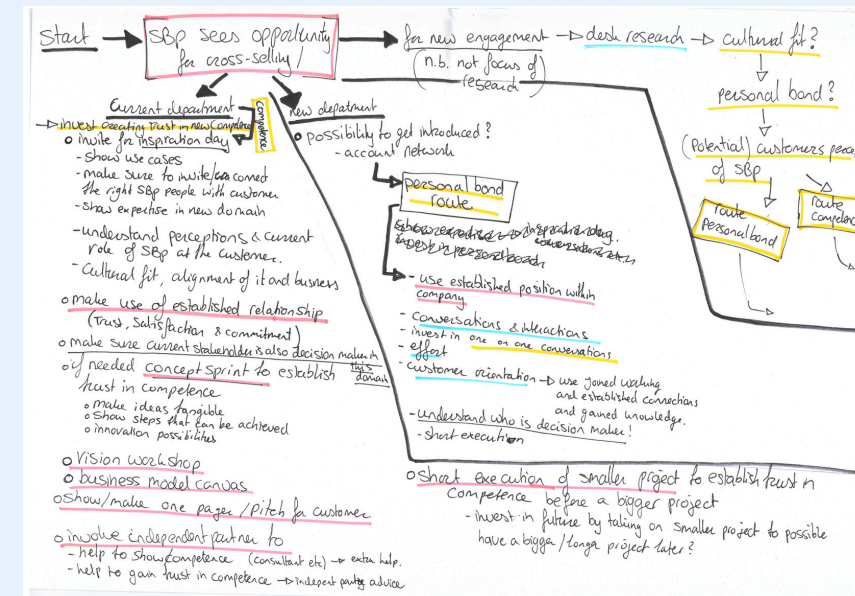 Start
SBP sees opportunity
for cross-selling!
for new engagement
(n.b. not focus of
research)
desk research
cultural fit?
personal bond?
(Potential) customers perce
of SBP
route
personal bond
route
competenc
Current department
competence
invest creating trust in new competence
o invite for inspiration day
- show use cases
- make sure to invite/connect
the right SBP people with customer
- show expertise in new domain
- understand perceptions & current
role of SBP at the customer.
- Cultural fit, alignment of it and business
o make use of established relationship
(Trust, Satisfaction & commitment)
o make sure current stakeholder is also decision maker in
this
domain
o if needed concept sprint to establish
trust in competence
o make ideas tangible
o show steps that can be achieved
o innovation possibilities
o Vision workshop
o business model canvas
o show/make one pager/pitch for customer
o involve independent partner to
- help to show competence (consultant etc) → extra help.
- help to gain trust in competence → indepent party advice
new depatment
o possibility to get introduced?
- account network
personal bond
route.
- use established position within
company
- conversations & interactions
- invest in one on one conversations
- effort
- customer orientation → use joined walking
and established connections
and gained knowledge.
- understand who is decision maker!
- short execution
o short execution of smaller project to establish trust in
competence before a bigger project
- invest in future by taking on smaller project to possible
have a bigger/longer project later?